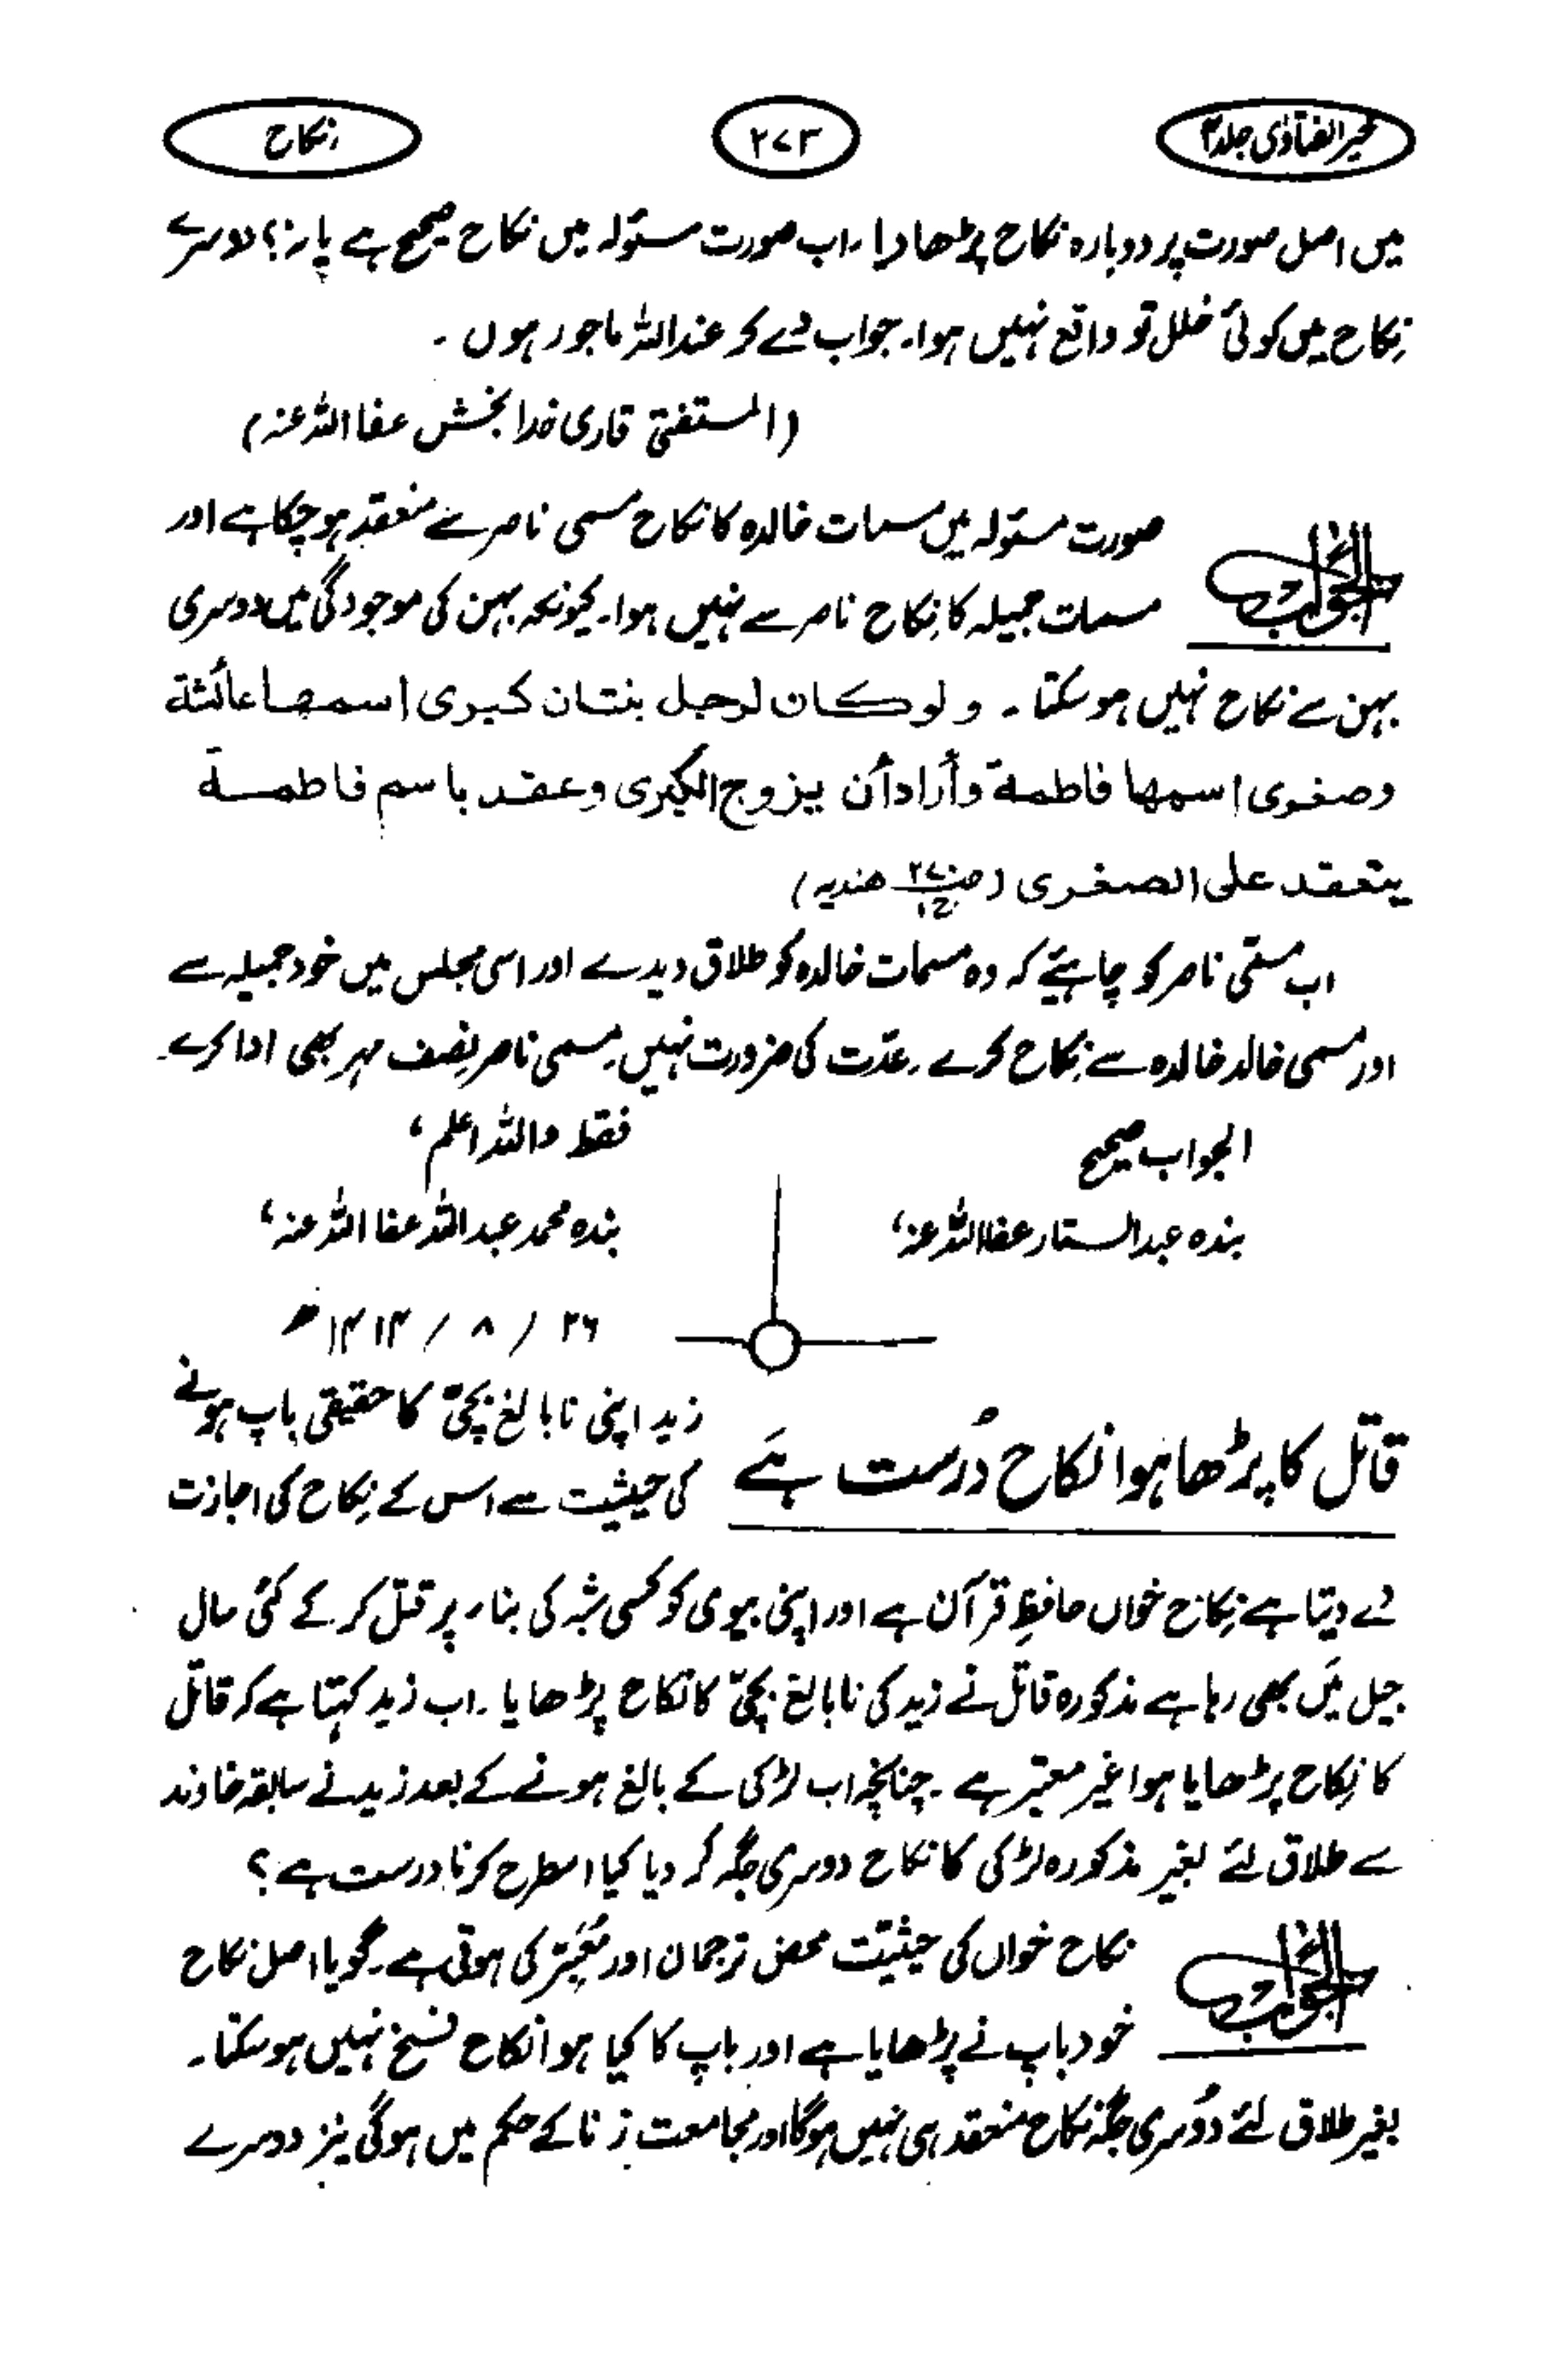 خیر الفتاوٰی جلد ۴
۲۷۳
نکاح
میں اصل صورت پر دوبارہ نکاح پڑھا دیا ۔ اب صورت مسئولہ میں نکاح صحیح ہے یا نہ ؟ دوسرے
نِکاح میں کوئی خلل تو واقع نہیں ہوا ۔ جواب دے کر عند اللہ ماجور ہوں ۔
(المستفتی قاری خدا بخش عفا اللہ عنہ)
الجواب
صورت مسئولہ میں مسمات خالدہ کا نکاح مسمی ناصر سے منعقد ہو چکا ہے اور
مسمات جمیلہ کا نِکاح ناصر سے نہیں ہوا ۔ کیونکہ بہن کی موجودگی میں دوسری
بہن سے نکاح نہیں ہو سکتا ۔ ولو كان لرجل بنتان كبرى اسمها عائشة
وصغرى اسمها فاطمة وأراد أن يزوج الكبرى وعقد باسم فاطمة
ينعقد على الصغرى (ص۲۷۰ ج۱ هنديه)
اب مسمّی ناصر کو چاہیئے کہ وہ مسمات خالدہ کو طلاق دیدے اور اسی مجلس میں خود جمیلہ سے
اور مسمی خالد خالدہ سے نِکاح کرے ۔ عدّت کی ضرورت نہیں ۔ مسمی ناصر نصف مہر بھی ادا کرے ۔
فقط واللہ اعلم ،
الجواب صحیح
بندہ محمد عبد اللہ عفا اللہ عنہ ،
بندہ عبد الستار عفا اللہ عنہ ،
۲۶ / ۸ / ۱۴۱۴ھ
قاتل کا پڑھا ہوا نکاح دُرست ہے
زید اپنی نابالغ بچیّ کا حقیقی باپ ہونے
کی حیثیت سے اس کے نِکاح کی اجازت
دے دیتا ہے نِکاح خواں حافظِ قرآن ہے اور اپنی بیوی کو کسی شبہ کی بناء پر قتل کر کے کئی سال
جیل میں بھی رہا ہے مذکورہ قاتل نے زید کی نابالغ بچیّ کا نکاح پڑھایا ۔ اب زید کہتا ہے کہ قاتل
کا نِکاح پڑھایا ہوا غیر معتبر ہے ۔ چنانچہ اب لڑکی کے بالغ ہونے کے بعد زید نے سابقہ خاوند
سے طلاق لئے بغیر مذکورہ لڑکی کا نکاح دوسری جگہ کر دیا کیا اسطرح کرنا درست ہے ؟
الجواب
نکاح خواں کی حیثیّت محض ترجمان اور مُعَبِّر کی ہوتی ہے ۔ گویا اصل نکاح
خود باپ نے پڑھایا ہے اور باپ کا کیا ہوا نکاح فسخ نہیں ہو سکتا ۔
بغیر طلاق لئے دوُسری جگہ نکاح منعقد ہی نہیں ہوگا اور مجامعت زنا کے حکم میں ہوگی نیز دوسرے